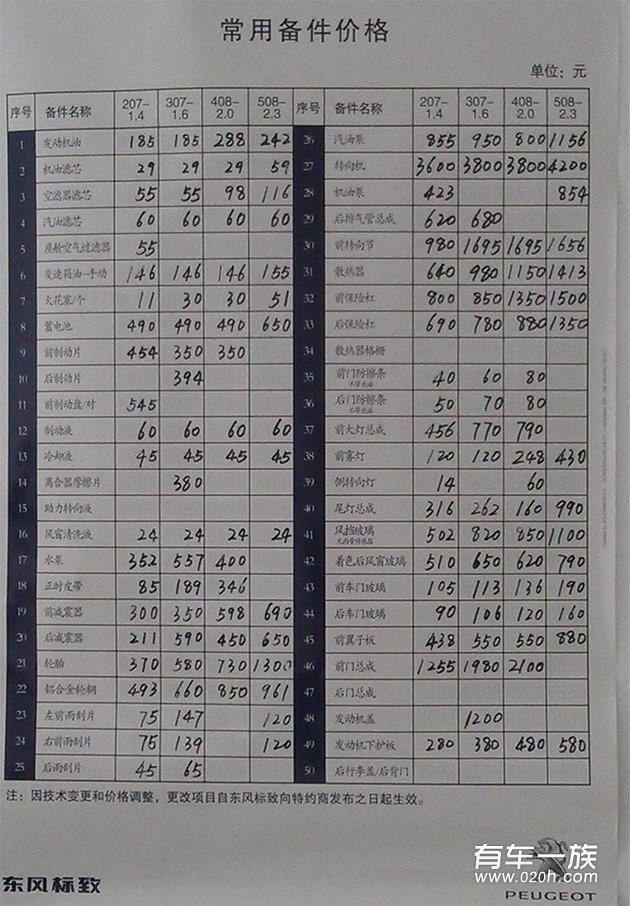 常用备件价格
单位：元
序号 备件名称 207-1.4 307-1.6 408-2.0 508-2.3 序号 备件名称 207-1.4 307-1.6 408-2.0 508-2.3
1 发动机油 185 185 288 242 26 汽油泵 855 950 800 1156
2 机油滤芯 29 29 29 59 27 转向机 3600 3800 3800 4200
3 空滤器滤芯 55 55 98 116 28 机油泵 423 854
4 汽油滤芯 60 60 60 60 29 后排气管总成 620 680
5 座舱空气过滤器 55 30 前转向节 980 1695 1695 1656
6 变速箱油-手动 146 146 146 155 31 散热器 640 980 1150 1413
7 火花塞/个 11 30 30 51 32 前保险杠 800 850 1350 1500
8 蓄电池 490 490 490 650 33 后保险杠 690 780 880 1350
9 前制动片 454 350 350 34 散热器格栅
10 后制动片 394 35 前门防擦条 40 60 80
11 前制动盘/对 545 36 后门防擦条 50 70 80
12 制动液 60 60 60 60 37 前大灯总成 456 770 790
13 冷却液 45 45 45 45 38 前雾灯 120 120 248 430
14 离合器摩擦片 380 39 侧转向灯 14 60
15 助力转向液 40 尾灯总成 316 262 160 990
16 风窗清洗液 24 24 24 24 41 风挡玻璃 502 820 850 1100
17 水泵 352 557 400 42 着色后风窗玻璃 510 650 620 790
18 正时皮带 85 189 346 43 前车门玻璃 105 113 136 190
19 前减震器 300 350 598 690 44 后车门玻璃 90 106 120 160
20 后减震器 211 590 450 650 45 前翼子板 438 550 550 880
21 轮胎 370 580 730 1300 46 前门总成 1255 1980 2100
22 铝合金轮辋 493 660 850 961 47 后门总成
23 左前雨刮片 75 147 120 48 发动机盖 1200
24 右前雨刮片 75 139 120 49 发动机下护板 280 380 480 580
25 后雨刮片 45 65 50 后行李盖/后背门
注：因技术变更和价格调整，更改项目自东风标致向特约商发布之日起生效。
有车一族
www.020h.com
东风标致
PEUGEOT